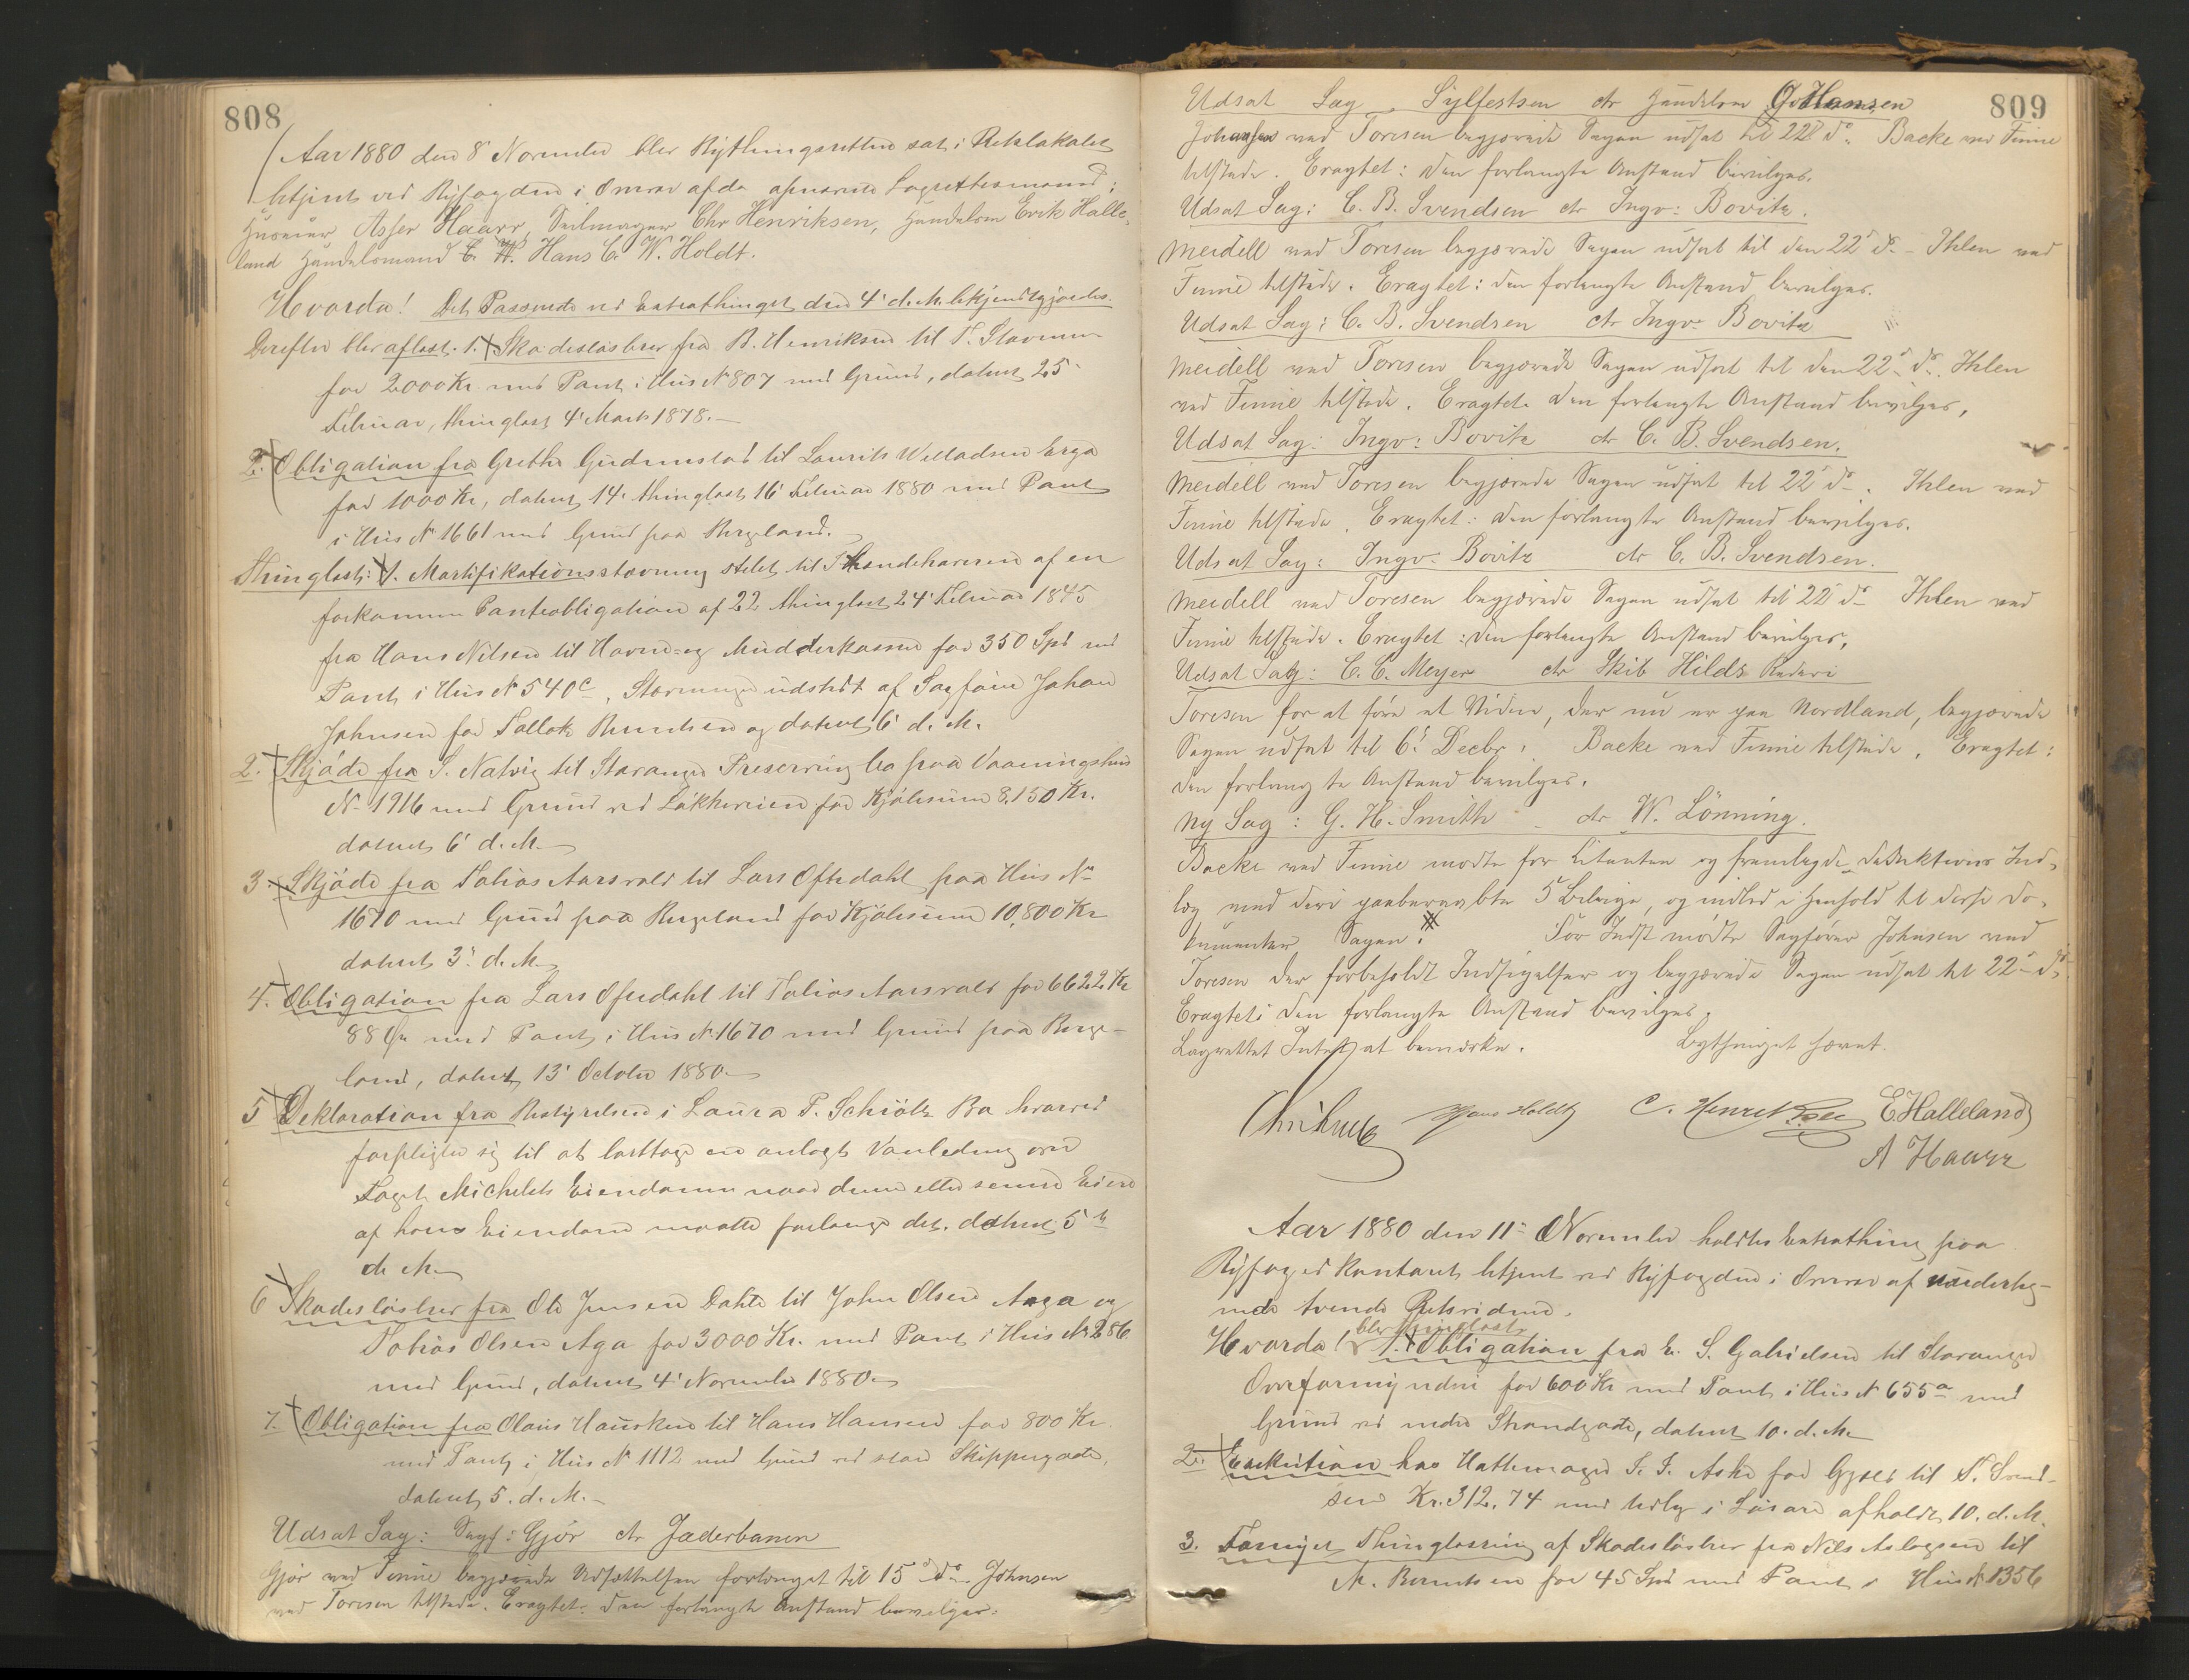 808
Aar 1880 den 8' November blev Bythingsretten sat i Retslokalet
betjent ved Byfogden i Overvær af de opnævnte Lagrettesmænd:
Huseier Asser Haarr, Seilmager Chr Henriksen, Handelsm Erik Halle-
land Handelsmand C. W. Hans C. W. Holdt.
Hvorda! Det Passerede ved Extrathinget den 4' d. M. bekjendtgjordes.
Derefter blev aflæst. 1. Skadesløsbrev fra B. Henriksen til P. Stavnem
for 2000 Kr. med Pant i Hus N 807 med Grund, dateret 25'
Februar, thinglæst 4' Marts 1878.—
2. Obligation fra Grethe Gudmestad til Laurits Welladsen Erga
for 1000 Kr, dateret 14' thinglæst 16' Februar 1880 med Pant
i Hus N 1661 med Grund paa Bergeland.
Thinglæst: 1. Mortifikationsstævning stilet til Ihændehaveren af en
forkommen Panteobligation af 22 thinglæst 24' Februar 1845
fra Hans Nilsen til Havne- og Mudderkassen for 350 Spd med
Pant i Hus N 540 c, Stævningen udstedt af Sagfører Johan
Johnsen for Tallak Berntsen og dateret 6' d. M.
2. Skjøde fra S. Natvig til Stavanger Preserving Co paa Vaaningshus
N 1916 med Grund ved Løkkeveien for Kjøbesum 8,150 Kr.
dateret 6' d. M.—
3. Skjøde fra Tobias Aarsvold til Lars Oftedahl paa Hus No
1670 med Grund paa Bergeland for Kjøbesum 10,800 Kr
dateret 3' d. M.
4. Obligation fra Lars Oftedahl til Tobias Aarsvold for 6622 Kr
88 Øre med Pant i Hus N 1670 med Grund paa Berge-
land, dateret 13' October 1880.—
5 Deklaration fra Bestyrelsen i Laura P. Schiötz Bo hvorved
forpligter sig til at borttage en anlagt Vandledning over
Foged Michelets Eiendomme naar denne eller senere Eiere
af hans Eiendom maatte forlange det. dateret 5te
d. M.
6 Skadesløsbrev fra Ole Jensen Dahle til John Olsen Aga og
Tobias Olsen Aga for 3000 Kr. med Pant i Hus N 286
med Grund, dateret 4' November 1880.—
7. Obligation fra Olaus Hausken til Hans Hansen for 800 Kr
med Pant i Hus N 1112 med Grund ved store Skippergade,
dateret 5. d. M.—
Udsat Sag: Sagf: Gjör ctr Jæderbanen
Gjör ved Finne begjærede Udsættelsen forlænget til 15' do Johnsen
ved Toresen tilstede. Eragtet: den forlangte Anstand bevilges.
809
Udsat Sag. Sylfestsen ctr Handelsm G. Hansen
Johnsen ved Toresen begjærede Sagen udsat til 22' do. Backe ved Finne
tilstede. Eragtet: den forlangte Anstand bevilges.
Udsat Sag: C. B. Svendsen ctr Ingv: Bovitz.
Meidell ved Toresen begjærede Sagen udsat til den 22' do - Ihlen ved
Finne tilstede. Eragtet: den forlangte Anstand bevilges.
Udsat Sag: C. B. Svendsen ctr Ingv: Bovitz
Meidell ved Toresen begjærede Sagen udsat til den 22' do. Ihlen
ved Finne tilstede. Eragtet. den forlangte Anstand bevilges,
Udsat Sag: Ingv: Bovitz ctr C. B. Svendsen.
Meidell ved Toresen begjærede Sagen udsat til 22' do. Ihlen ved
Finne tilstede. Eragtet: den forlangte Anstand bevilges.
Udsat Sag: Ingv: Bovitz ctr C. B. Svendsen.
Meidell ved Toresen begjærede Sagen udsat til 22' do Ihlen ved
Finne tilstede. Eragtet: den forlangte Anstand bevilges.
Udsat Sag: C. C. Meyer ctr Skib Hilds Rederi
Toresen for at føre et Vidne, der nu er paa Nordland, begjærede
Sagen udsat til 6' Decbr. Backe ved Finne tilstede. Eragtet:
den forlangte Anstand bevilges.
Ny Sag: G. H. Smith ctr W. Lönning.
Backe ved Finne mødte for Citanten og fremlagde deduktions Ind-
læg med deri paaberaabte 5 Bilage, og indlod i Henhold til disse Do-
kumenter Sagen. For Indst mødte Sagfører Johnsen ved
Toresen der forbeholdt Indsigelser og begjærede Sagen udsat til 22' do
Eragtet: den forlangte Anstand bevilges.
Lagrettet Intet at bemærke. Bythinget hævet.
Hans Holdt C. Henriksen E Halleland
A Haarr
Aar 1880 den 11' November holdtes Extrathing paa
Byfogedkontoret betjent ved Byfogden i Overvær af underteg-
nede tvende Retsvidner.
Hvorda! blev thinglæst
1. Obligation fra E. S. Gabrielsen til Stavanger
Overformynderi for 600 Kr med Pant i Hus N 655 a med
Grund ved nedre Strandgade, dateret 10. d. M.
2. Exekution hos Hattemager T. T. Aske for Gjæld til S. Svend-
sen Kr. 312.74 med Udlæg i Løsøre afholdt 10. d. M.
3. Fornyet Thinglæsning af Skadesløsbrev fra Nils Aslagsen til
M. Berntsen for 45 Spd med Pant i Hus N 1356